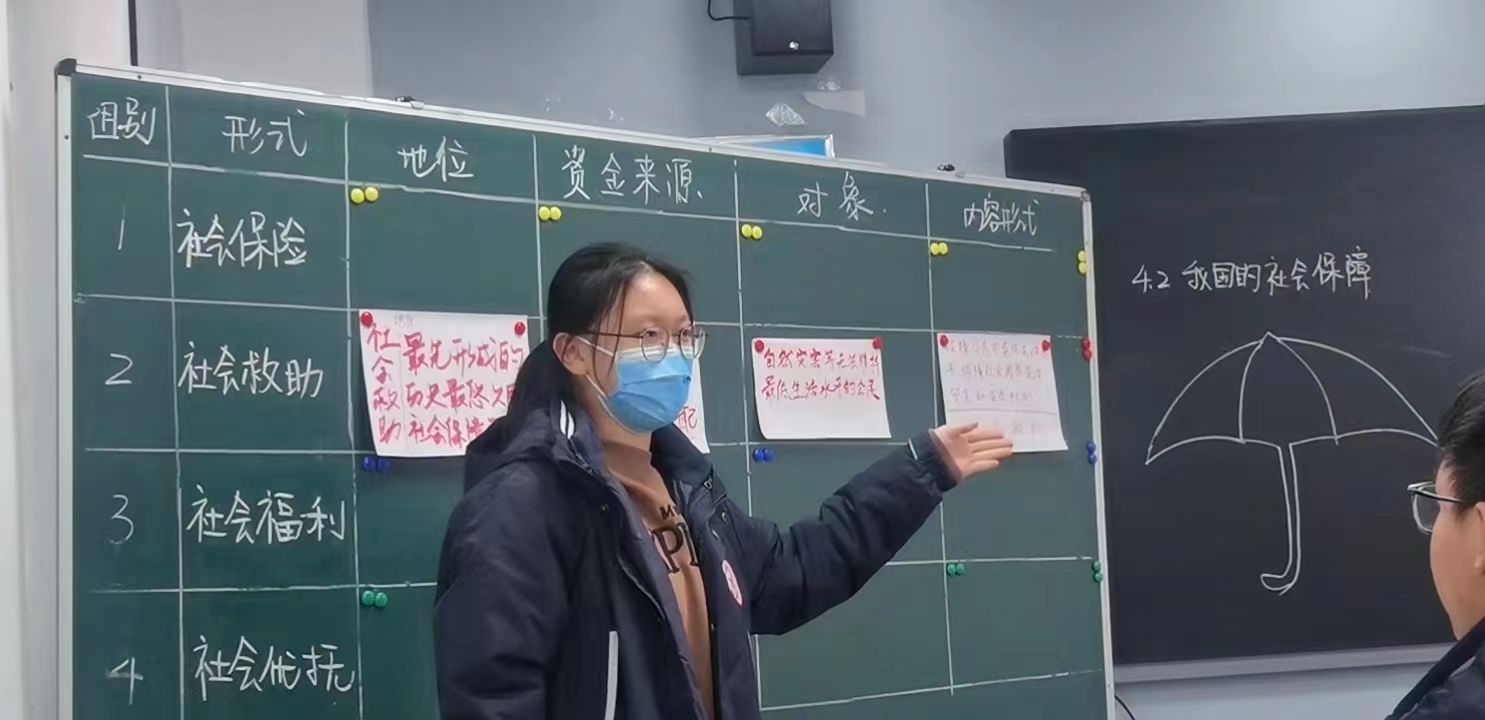 组别 形式 地位 资金来源 对象 内容形式
1 社会保险
2 社会救助
社会救助
最先形成的
历史最悠久的
社会保障
配
自然灾害等无法维持
最低生活水平的公民
3 社会福利
4 社会优抚
4.2 我国的社会保障